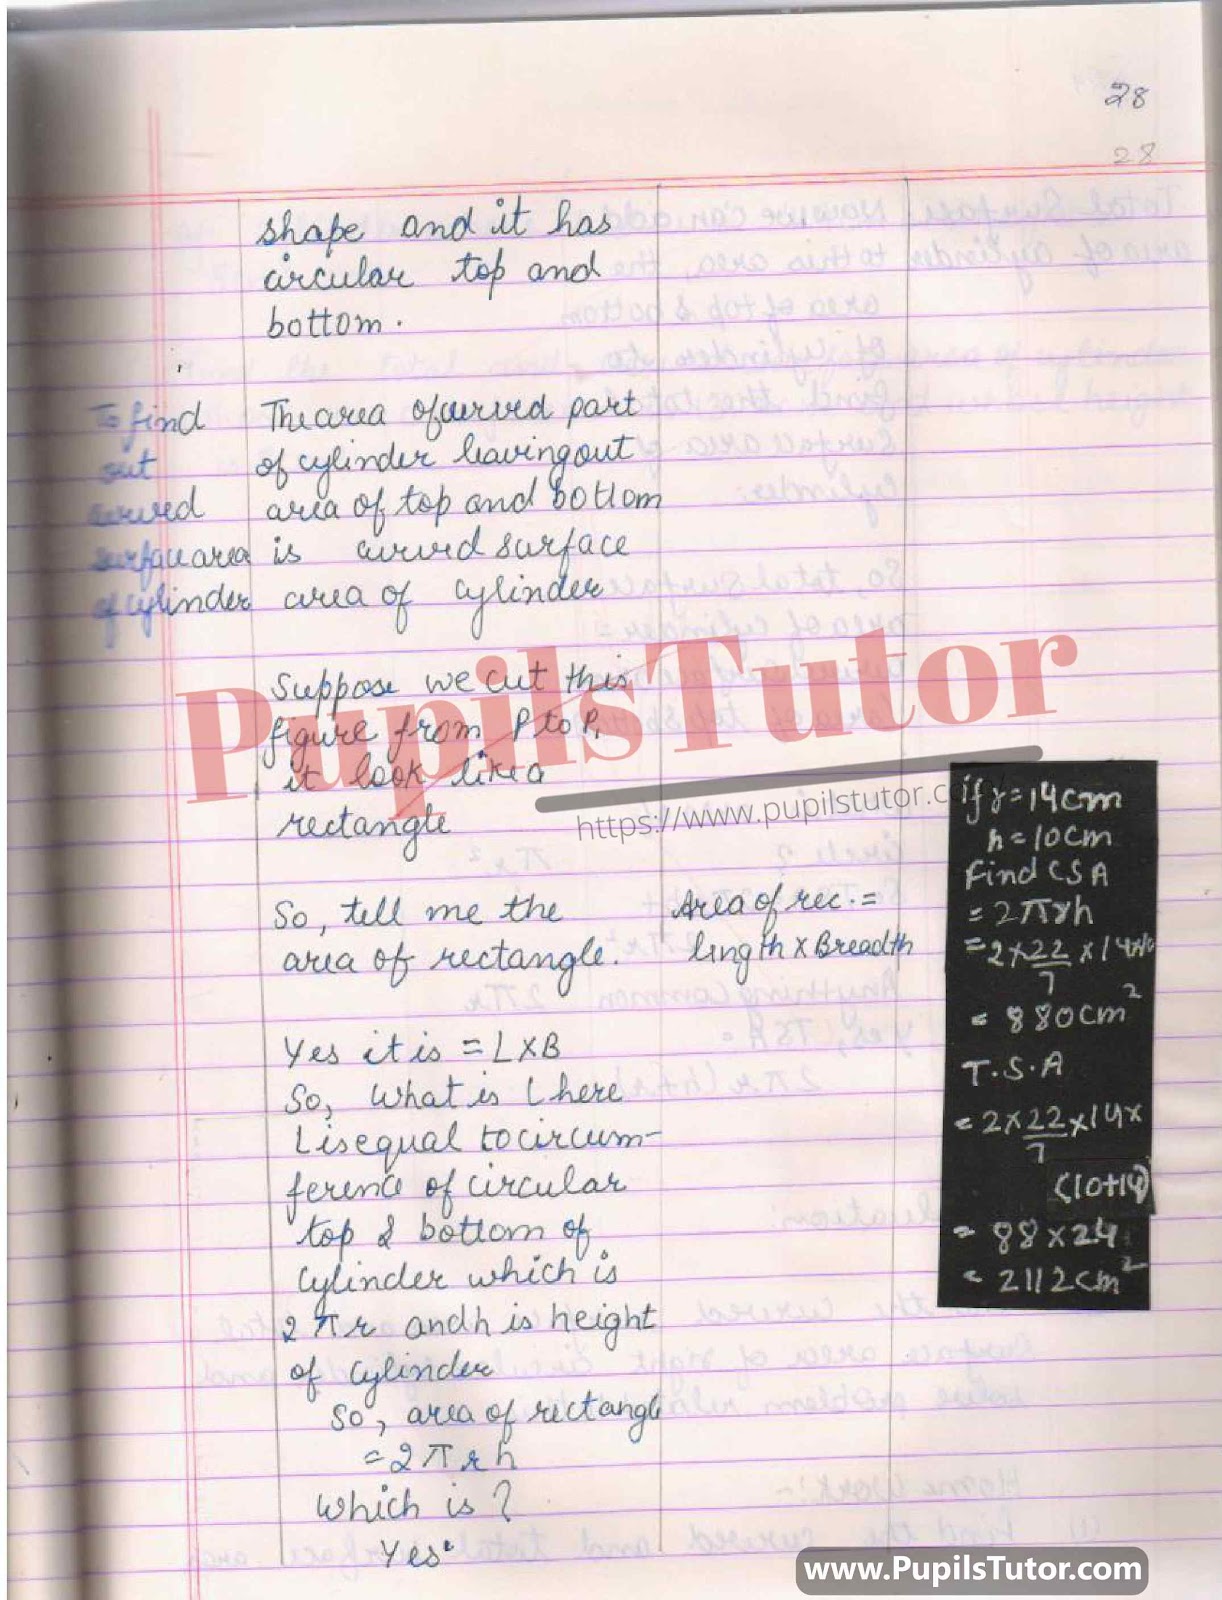 28
28
shape and it has
circular top and
bottom.
To find
out
curved
surface area
of cylinder
The area of curved part
of cylinder leaving out
area of top and bottom
is curved surface
area of cylinder
Suppose we cut this
figure from P to P,
it look like a
rectangle
PupilsTutor
https://www.pupilstutor.c
So, tell me the
area of rectangle.
Area of rec. =
length x Breadth
Yes it is = L X B
So, What is L here
L is equal to circum-
ference of circular
top & bottom of
cylinder which is
2πr and h is height
of cylinder
So, area of rectangle
= 2πrh
Which is ?
Yes
if r = 14cm
h = 10cm
Find CSA
= 2πrh
= 2 x 22/7 x 14x10
= 880cm²
T.S.A
= 2 x 22/7 x 14 x
(10+14)
= 88 x 24
= 2112cm²
www.PupilsTutor.com